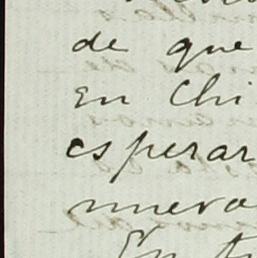 de que
en Chi
esperar
nueva
En tu